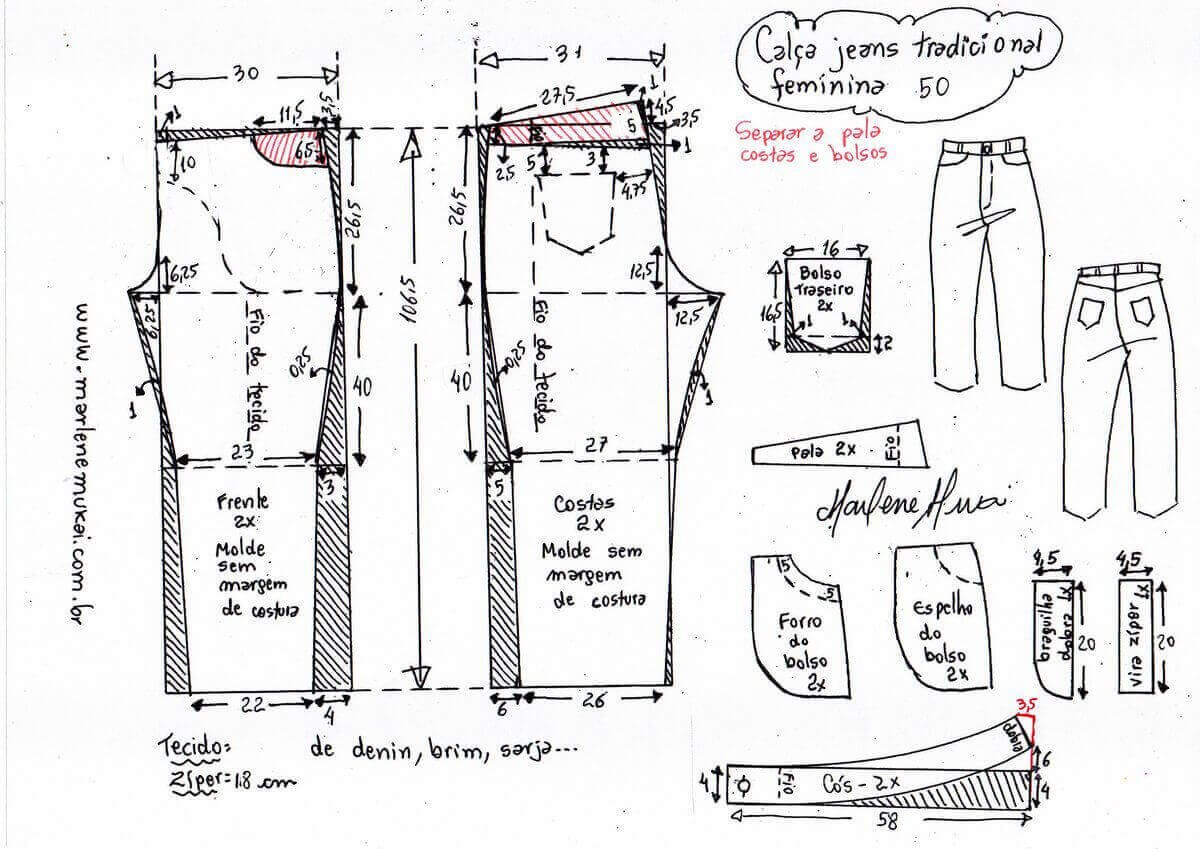 Calça jeans tradicional
feminina 50
Separar a pala
costas e bolsos
30
1
11,5
3,5
6,5
10
26,5
6,25
6,25
Fio do tecido
0,25
40
1
23
3
Frente
2x
Molde
sem
margem
de costura
22
4
106,5
31
27,5
1
4,5
3,5
5
Fio
1
2,5
5
3
4,75
26,5
12,5
12,5
Fio do tecido
0,25
40
1
27
5
Costas
2x
Molde sem
margem
de costura
6
26
16
Bolso
Traseiro
2x
16,5
1
1
2
Pala 2x
Fio
Marlene Mukai
5
5
Forro
do
bolso
2x
Espelho
do
bolso
2x
4,5
braguilha
dobra 1x
20
4,5
vira zíper 1x
20
3,5
dobra
6
4
Fio
Cós - 2x
4
58
Tecido: de denin, brim, sarja...
Zíper=18 cm
www.marlenemukai.com.br